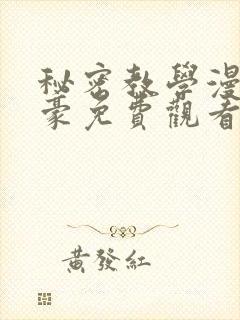 秘密教學漫
豪免費觀看
黃發紅